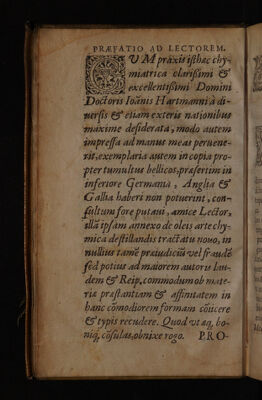 PRÆFATIO AD LECTOREM.
CUM praxis isthæc chy-
miatrica clarißimi &
excellentißimi Domini
Doctoris Ioānis Hartmanni à di-
uersis & etiam exteris nationibus
maxime desiderata, modo autem
impressa ad manus meas peruene-
rit, exemplaria autem in copia pro-
pter tumultus bellicos, præsertim in
inferiore Germania, Anglia &
Gallia haberi non potuerint, con-
sultum fore putaui, amice Lector,
illā ipsam annexo de oleis arte chy-
mica destillandis tractatu nouo, in
nullius tamē præiudiciū vel fraudē
sed potius ad maiorem autoris lau-
dem & Reip. commodum ob mate-
riæ præstantiam & affinitatem in
hanc cōmodiorem formam cōiicere
& typis recudere. Quod vt æq, bo-
niq, cōsulas, obnixe rogo. PRO-